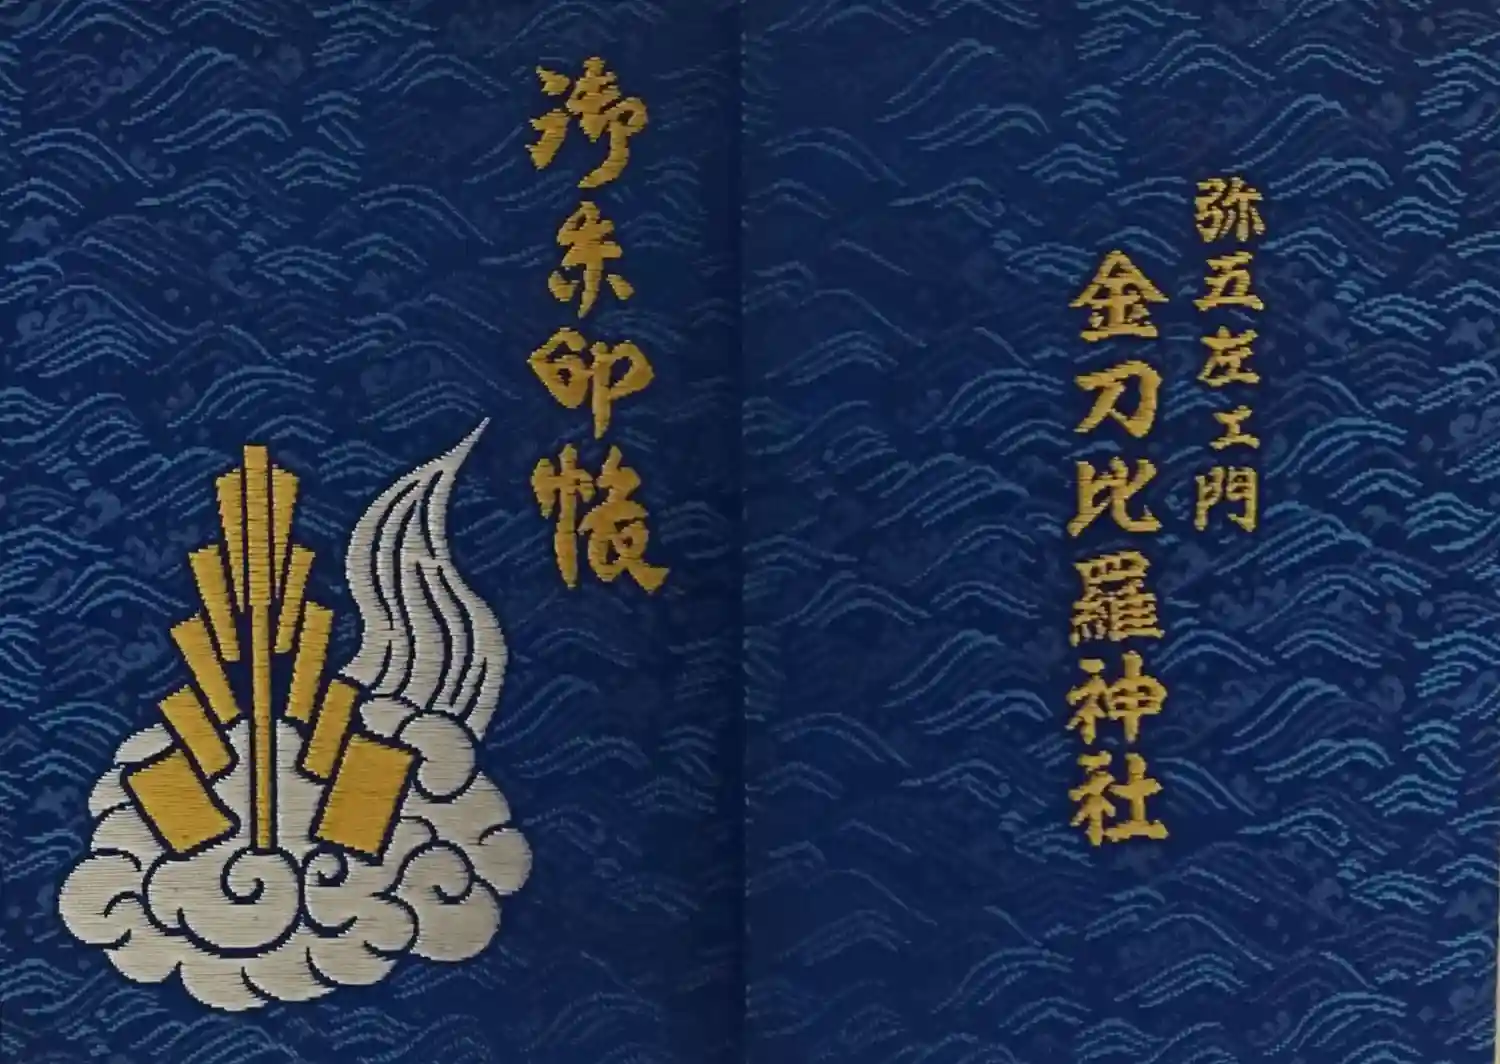 弥五左エ門
金刀比羅神社
御朱印帳